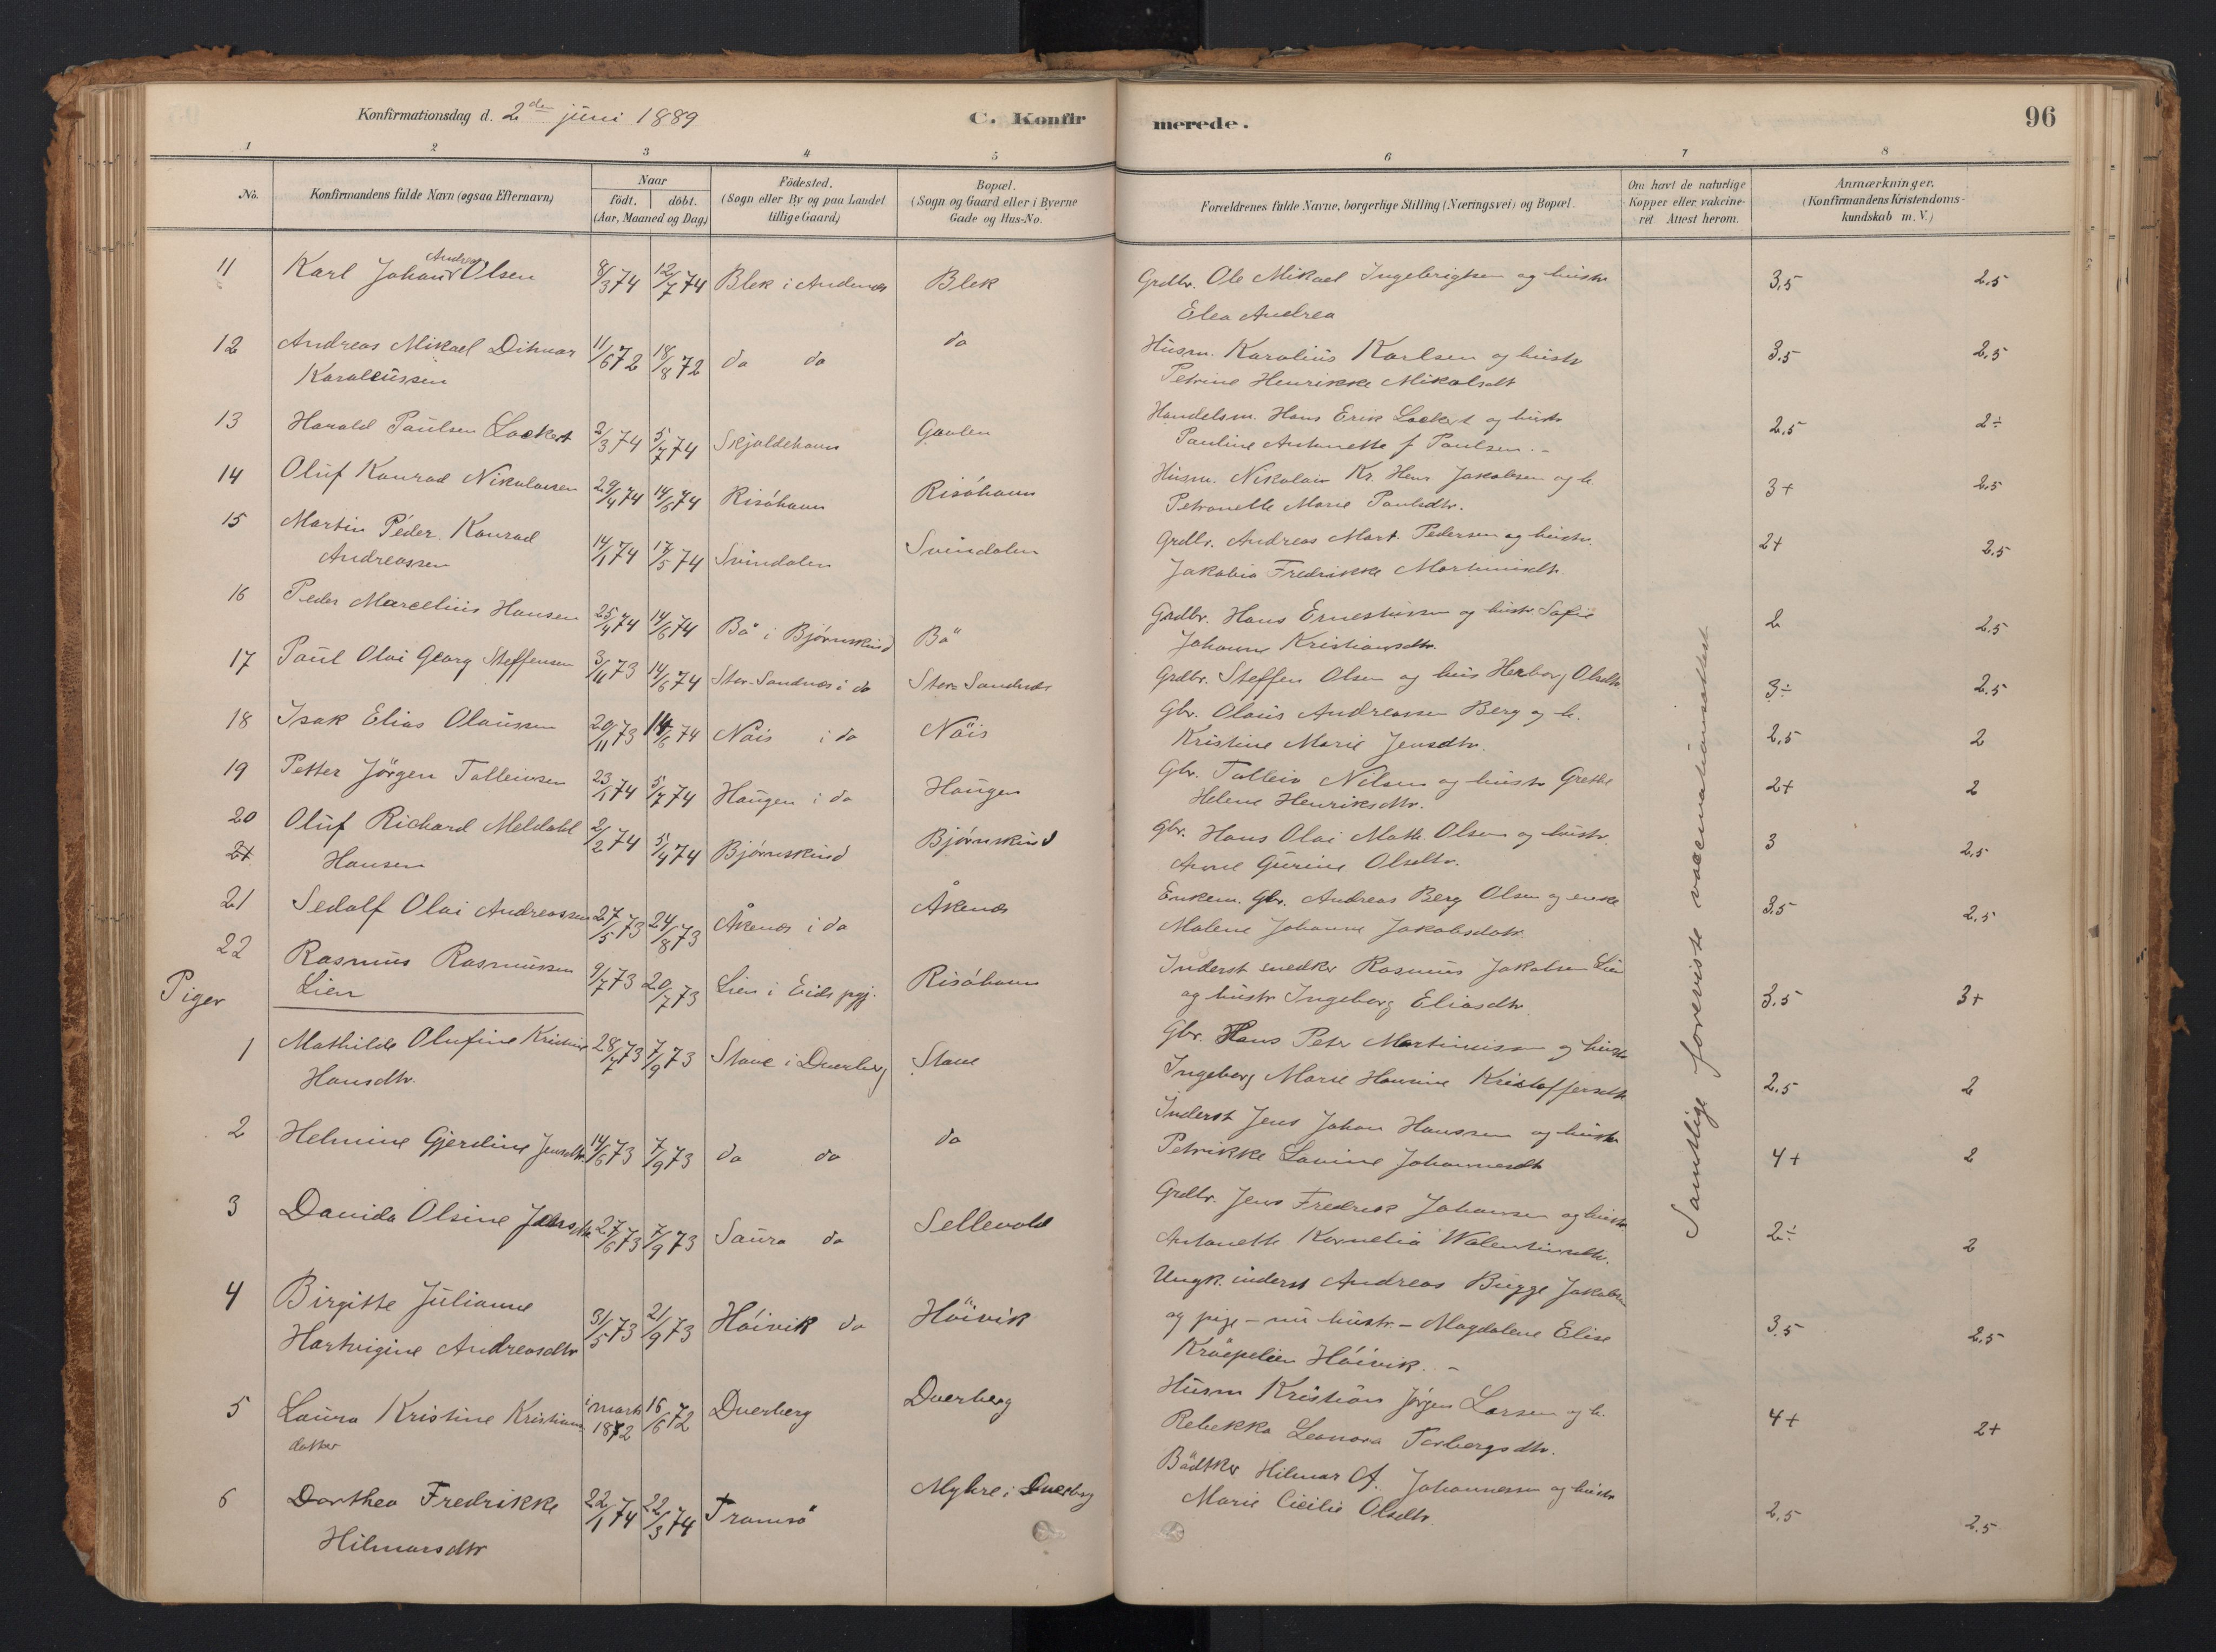 Konfirmationsdag d. 2den juni 1889
C. Konfirmerede.
96
1 2 3 4 5 6 7 8
No.
Konfirmandens fulde Navn (ogsaa Efternavn)
Naar
födt. döbt.
(Aar, Maaned og Dag)
Födested.
(Sogn eller By og paa Landet
tillige Gaard)
Bopæl.
(Sogn og Gaard eller i Byerne
Gade og Hus-No.
Forældrenes fulde Navne, borgerlige Stilling (Næringsvei) og Bopæl.
Om havt de naturlige
Kopper eller vakcine-
ret Attest herom.
Anmærkninger.
(Konfirmandens Kristendoms-
kundskab m. V.)
11 Karl Johan Andreas Olsen 8/3 74 12/7 74 Blek i Andenæs Blek Grdbr. Ole Mikael Ingebrigtsen og hustr 3,5 2.5
Elea Andrea
12 Andreas Mikael Ditmar 11/6 72 18/8 72 do do do Husm. Karolius Karlsen og hustr 3.5 2.5
Karoliussen Petrine Henrikke Mikalsdt
13 Harald Paulsen Lockert 2/3 74 5/7 74 Skjoldehavn Gavlen Handelsm. Hans Erik Lockert og hustr 2.5 2÷
Pauline Antonette f. Paulsen. -
14 Oluf Konrad Nikolaisen 29/4 74 14/6 74 Risöhavn Risöhavn Husm. Nikolai Kr. Henr Jakobsen og h. 3+ 2.5
Petronelle Marie Paulsdtr.
15 Martin Peder Konrad 14/1 74 17/5 74 Svindalen Svindalen Grdbr. Andreas Mart. Pedersen og hustr. 2+ 2.5
Andreassen Jakobia Fredrikke Martinusdtr.
16 Peder Marcelius Hansen 25/4 74 14/6 74 Bö i Björnskind Bö Grdbr. Hans Ernestussen og hustr. Sofie 2 2.5
Johanna Kristiansdtr.
17 Paul Olai Georg Steffensen 3/11 73 14/6 74 Stor-Sandnes i do Stor-Sandnes Grdbr. Steffen Olsen og hus Herborg Olsdtr 3÷ 2.5
18 Isak Elias Olaussen 20/11 73 14/6 74 Nöis i do Nöis Gbr. Olaus Andreassen Berg og h. 2,5 2
Kristine Marie Jensdtr.
19 Petter Jörgen Tolleivsen 23/1 74 5/7 74 Haugen i do Haugen Gbr. Tolleiv Nilsen og hustr Grethe 2+ 2
Helene Henriksdtr.
20 Oluf Richard Meldahl 2/2 74 5/4 74 Björnskind Björnskind Gbr. Hans Olai Math. Olsen og hustr. 3 2.5
21 Hansen Anne Gurine Olsdtr.
21 Sedolf Olai Andreassen 27/5 73 24/8 73 Åkenes i do Åkenes Enkem. Gbr. Andreas Berg Olsen og enke 3.5 2.5
Malene Johanna Jakobsdatr.
22 Rasmus Rasmussen 9/7 73 20/7 73 Lien i Eids pgj. Risöhavn Inderst snedker Rasmus Jakobsen Lien 3.5 3+
Lien og hustr Ingeborg Eliasdtr.
Piger
1 Mathilde Olufine Kristine 28/7 73 7/9 73 Stave i Dverberg Stave Gbr. Hans Peter Martinussen og hustr 2.5 2
Hansdtr. Ingeborg Marie Hansine Kristoffersdtr
2 Helmine Gjerdine Jensdtr. 14/6 73 7/9 73 do do do Inderst Jens Johan Hanssen og hustr 4+ 2
Petrikke Lovine Johannesdtr
3 Davida Olsine Jensdtr 27/6 73 7/9 73 Saura do Sellevold Grdbr. Jens Fredrik Johansen og hustr 2÷ 2
Antonette Kornelia Walentinsdtr.
4 Birgitte Julianne 31/5 73 21/9 73 Höivik do Höivik Ungk. inderst Andreas Bugge Jakobsen 3.5 2,5
Hartvigine Andreasdtr og pige - nu hustr. - Magdalene Elise
Kräepelien Höivik. -
5 Laura Kristine Kristians i marts 1872 16/6 72 Dverberg Dverberg Husm Kristian Jörgen Larsen og h. 4+ 2+
datter Rebekka Leonora Torbergsdtr.
6 Dorthea Fredrikke 22/1 74 22/3 74 Tromsö Myhre i Dverberg Bödtker Hilmar A. Johannessen og hustr 2.5 2.5
Hilmarsdtr Marie Cicilie Olsdtr.
Samtlige foreviste vaccinationsattest